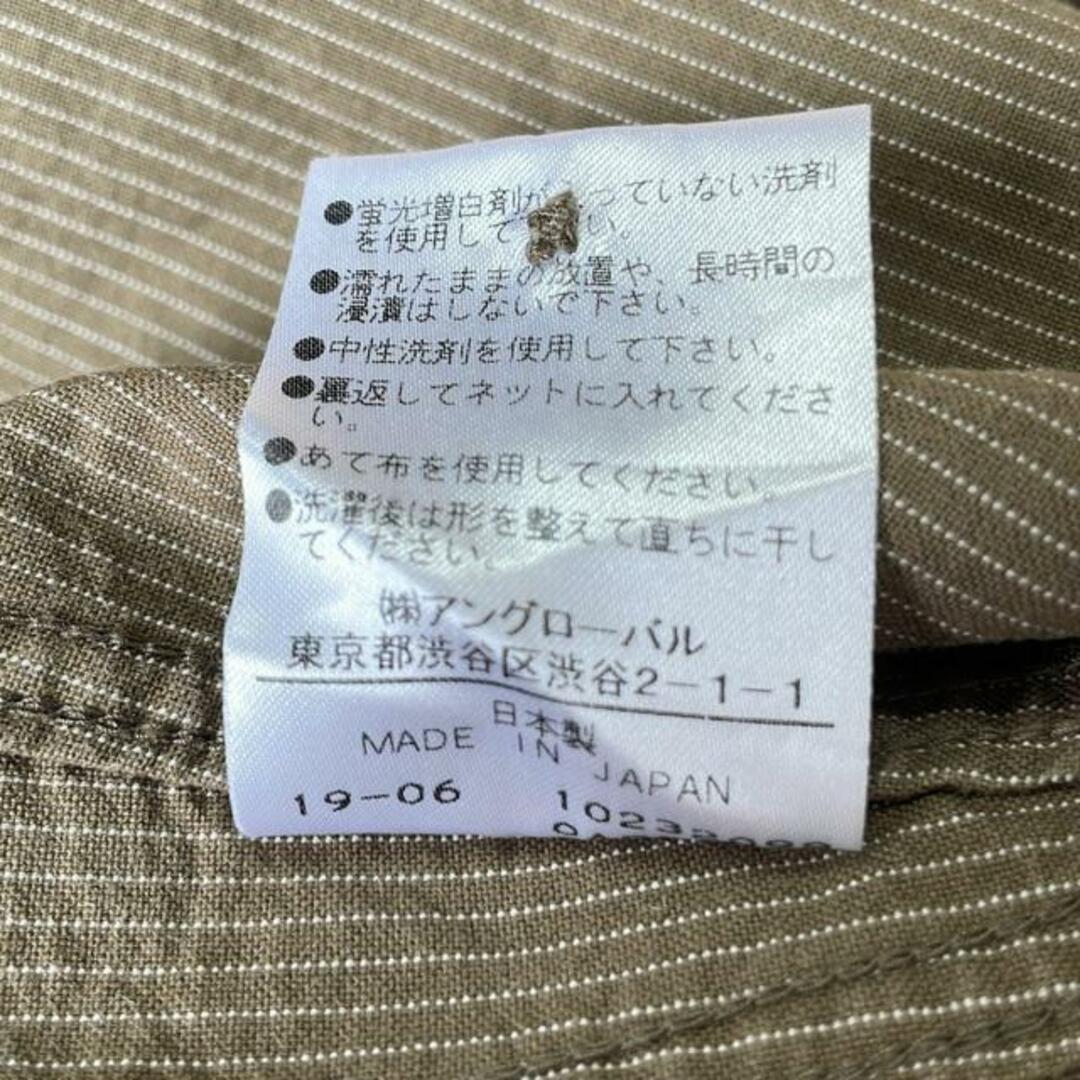 ●蛍光増白剤が入っていない洗剤
を使用して下さい。
●濡れたままの放置や、長時間の
浸漬はしないで下さい。
●中性洗剤を使用して下さい。
●裏返してネットに入れてくださ
い。
●あて布を使用してください。
●洗濯後は形を整えて直ちに干し
てください。
㈱アングローバル
東京都渋谷区渋谷2-1-1
日本製
MADE IN JAPAN
19-06